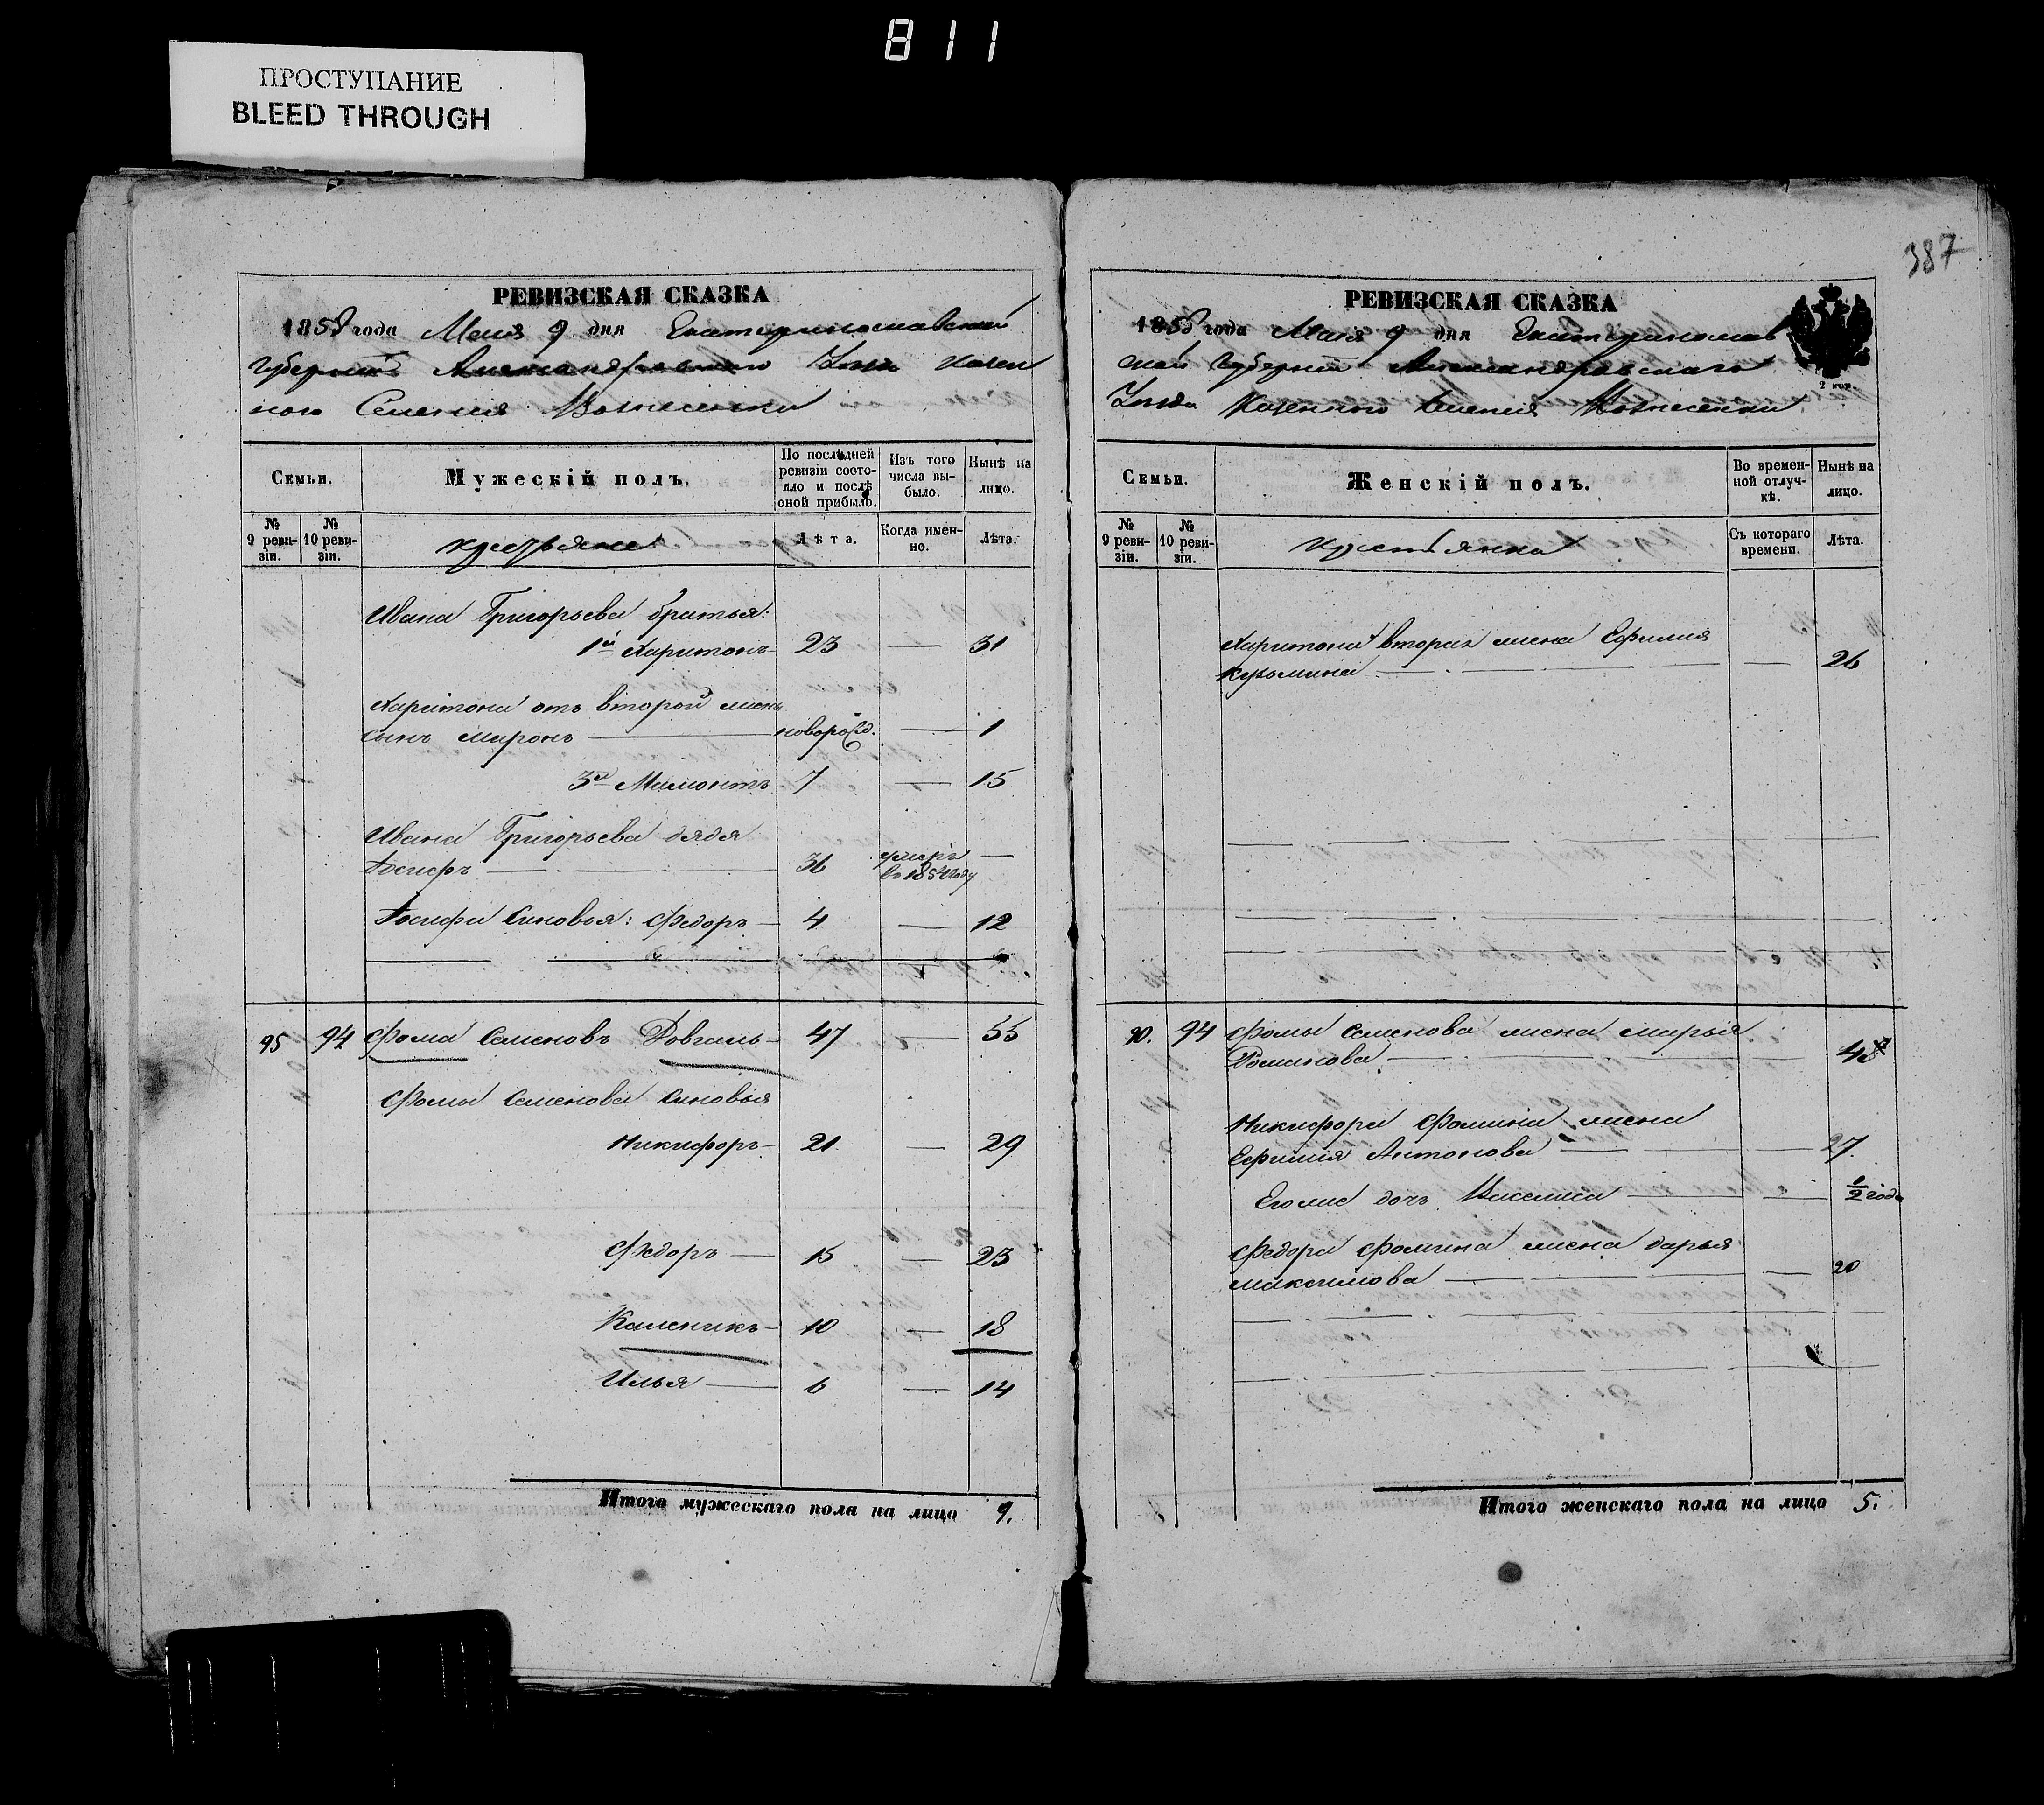 811
ПРОСТУПАНИЕ
BLEED THROUGH
РЕВИЗСКАЯ СКАЗКА
1858 года Мая 9 дня Екатеринославской
Губернии Александровского Уезда Казен
ного Селения Вознесенки
Семьи.
Мужескій полъ.
По послѣдней ревизіи состояло и послѣ оной прибыло.
Изъ того числа выбыло.
Нынѣ на лицо.
№ 9 ревизіи.
№ 10 ревизіи.
крестьяне
Лѣта.
Когда именно.
Лѣта.
Ивана Григорьева братья:
1й Харитонъ 23 — 31
Харитона отъ второй жены
сынъ Миронъ — новорожд. — 1
3й Мамонтъ 7 — 15
Ивана Григорьева дядя
Іосифъ — 36 умеръ въ 1854 году —
Іосифа Сыновья: Федоръ — 4 — 12
95 94 Фома Семеновъ Довгаль 47 — 55
Фомы Семенова Сыновья
Никифоръ 21 — 29
Федоръ — 15 — 23
Каленикъ 10 — 18
Илья — 6 — 14
Итого мужескаго пола на лицо 9.
387
РЕВИЗСКАЯ СКАЗКА
1858 года Мая 9 дня Екатеринослав
ской Губернии Александровскаго
Уезда Казенного Селения Вознесенки
2 коп.
Семьи.
Женскій полъ.
Во временной отлучкѣ.
Нынѣ на лицо.
№ 9 ревизіи.
№ 10 ревизіи.
крестьянки
Съ котораго времени.
Лѣта.
Харитона вторая жена Ефимия
Кузьмина — — 26
90. 94 Фомы Семенова жена Марья
Романова —
Никифора Фомина жена
Ефимия Антонова — — 27.
Его же дочь Василиса — — 1/2 года
Федора Фомина жена Дарья
Максимова — — 20
Итого женскаго пола на лицо 5.